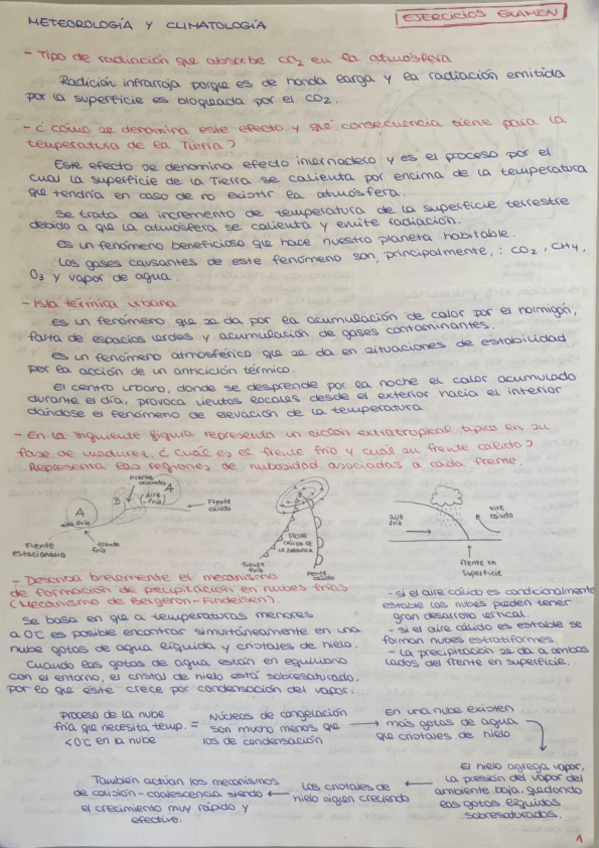 METEOROLOGÍA Y CLIMATOLOGÍA
EJERCICIOS EXAMEN
- Tipo de radiación que absorbe CO2 en la atmósfera
Radición infrarroja porque es de honda larga y la radiación emitida
por la superficie es bloqueada por el CO2.
- ¿Cómo se denomina este efecto y qué consecuencia tiene para la
temperatura de la Tierra?
Este efecto se denomina efecto invernadero y es el proceso por el
cual la superficie de la Tierra se calienta por encima de la temperatura
que tendría en caso de no existir la atmósfera.
Se trata del incremento de temperatura de la superficie terrestre
debido a que la atmósfera se calienta y emite radiación.
Es un fenómeno beneficioso que hace nuestro planeta habitable.
Los gases causantes de este fenómeno son, principalmente, : CO2, CH4,
O3 y vapor de agua.
- Isla térmica urbana
Es un fenómeno que se da por la acumulación de calor por el hormigón,
falta de espacios verdes y acumulación de gases contaminantes.
Es un fenómeno atmosférico que se da en situaciones de estabilidad
por la acción de un anticiclón térmico.
El centro urbano, donde se desprende por la noche el calor acumulado
durante el día, provoca vientos locales desde el exterior hacia el interior
dándose el fenómeno de elevación de la temperatura
- En la siguiente figura representa un ciclón extratropical típico en su
fase de madurez, ¿Cuál es el frente frío y cuál su frente cálido?
Representa las regiones de nubosidad asociadas a cada frente.
Frente
ocluido
A
aire fría
B
(aire
fría)
A
Frente
cálido
Frente
estacionario
frente
frío
SECTOR
CÁLIDO DE
LA BORRASCA
frente
frío
frente
cálido
aire
frío
aire
cálido
frente en
superficie
- Describa brevemente el mecanismo
de formación de precipitación en nubes frías
(Mecanismo de Bergeron-Findeisen)
Se basa en que a temperaturas menores
a 0°C es posible encontrar simultáneamente en una
nube gotas de agua líquida y cristales de hielo.
Cuando las gotas de agua están en equilibrio
con el entorno, el cristal de hielo está sobresaturado,
por lo que éste crece por condensación del vapor.
- si el aire cálido es condicionalmente
estable las nubes pueden tener
gran desarrollo vertical.
- si el aire cálido es estable se
forman nubes estratiformes.
- La precipitación se da a ambos
lados del frente en superficie.
Proceso de la nube
fría que necesita temp.
<0°C en la nube
=
Núcleos de congelación
son mucho menos que
los de condensación
En una nube existen
más gotas de agua
que cristales de hielo
El hielo agrega vapor,
la presión del vapor del
ambiente baja, quedando
las gotas líquidas
sobresaturadas.
Los cristales de
hielo siguen creciendo
También actúan los mecanismos
de colisión-coalescencia siendo
el crecimiento muy rápido y
efectivo.
1